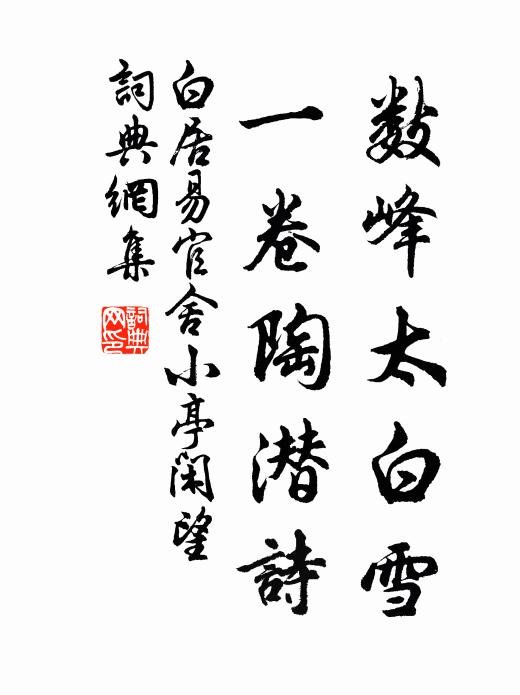 數峰太白雪
一卷陶潛詩
白居易官舍小亭閑望
詞典網集
詞典网印